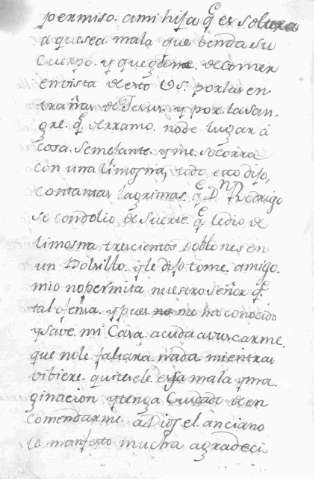 permiso. ami hija q̃ es soltera
a que sea mala que benda su
cuerpo. y que gane de comer
en vista de esto Vs. por las en
trañas de Jesus y por la san
gre. q̃ derramo. no de lugar à
cosa semejante. y me socorra
con una limosna, todo esto dijo,
con tantas lagrimas q̃ Dn Rodrigo
se condolio de suerte q̃ le dio de
limosna trescientos doblones en
un Bolsillo y le dijo tome amigo
mio no permita nuestro Señor q̃
tal ofensa. y pues me ha conocido
y save mi Casa acuda a vuscarme
que no le faltara nada mientras
vibiere quitesele esa mala yma
ginacion y tenga Cuidado de en
comendarme a Dios el anciano
le manifesto mucha agradeci